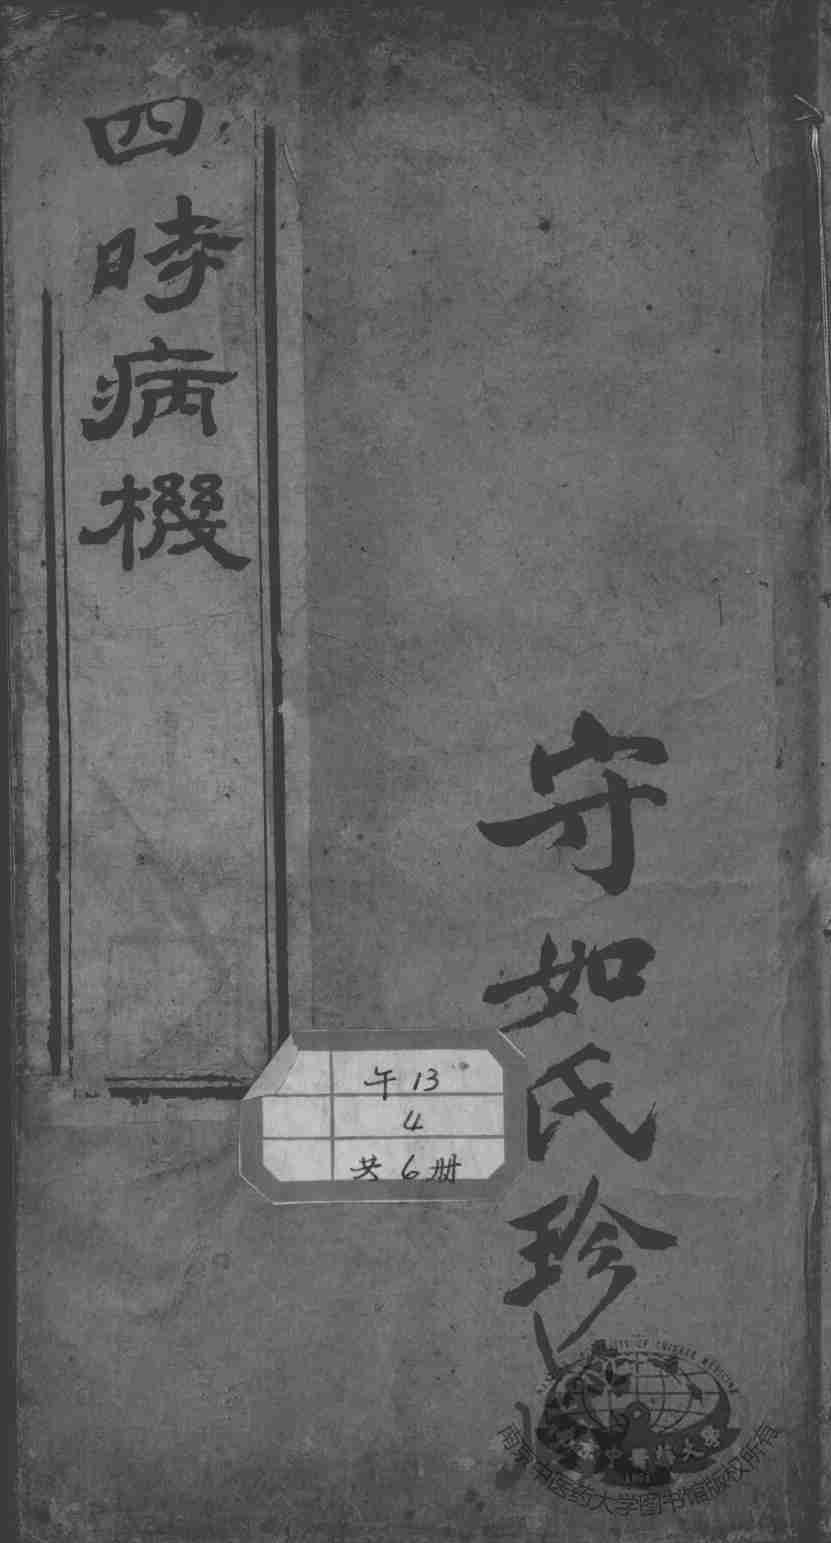 四時病機
守如氏珍
午13
4
共6册
南京中医药大学图书馆版权所有